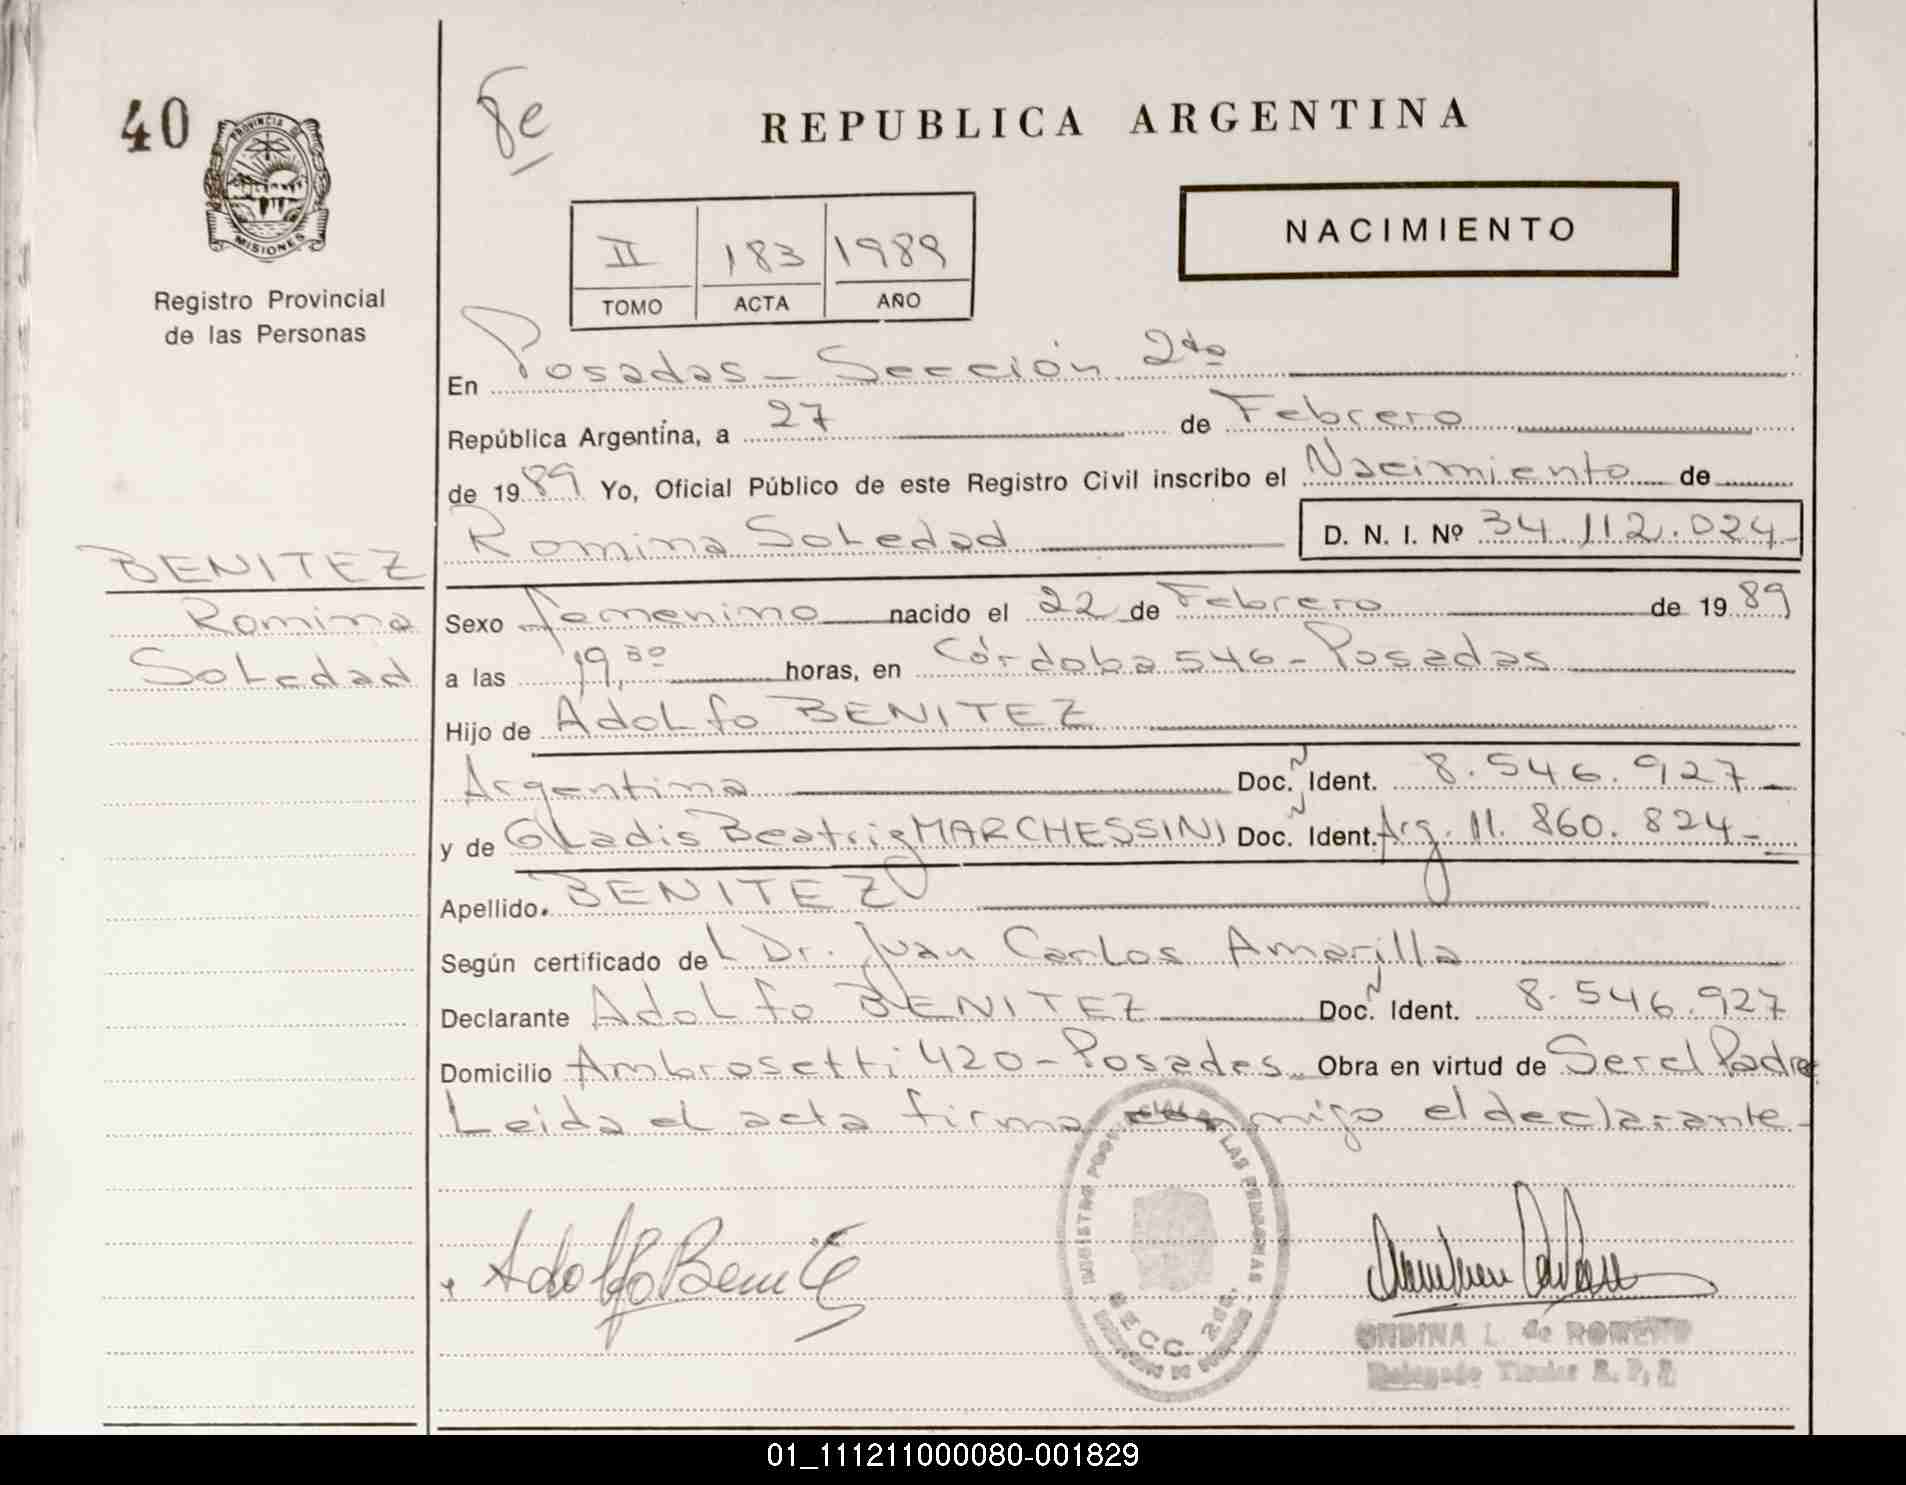 40
PROVINCIA DE
MISIONES
Registro Provincial
de las Personas
REPUBLICA ARGENTINA
NACIMIENTO
II 183 1989
TOMO ACTA AÑO
En Posadas - Sección 2da
República Argentina, a 27 de Febrero
de 1989 Yo, Oficial Público de este Registro Civil inscribo el Nacimiento de
Romina Soledad D. N. I. Nº 34.112.024-
BENITEZ
Romina
Soledad
Sexo femenino nacido el 22 de Febrero de 1989
a las 19,30 horas, en Córdoba 546 - Posadas
Hijo de Adolfo BENITEZ
Argentina Doc. Ident. 8.546.927-
y de Gladis Beatriz MARCHESSINI Doc. Ident. Arg. 11.860.824-
Apellido. BENITEZ
Según certificado del Dr. Juan Carlos Amarilla
Declarante Adolfo BENITEZ Doc. Ident. 8.546.927
Domicilio Ambrosetti 420 - Posadas Obra en virtud de Ser el Padre
Leida el acta firma conmigo el declarante-
Adolfo Benitez
SECC. 2da.
ONDINA L. de
Delegado Titular R. P. P.
01_111211000080-001829